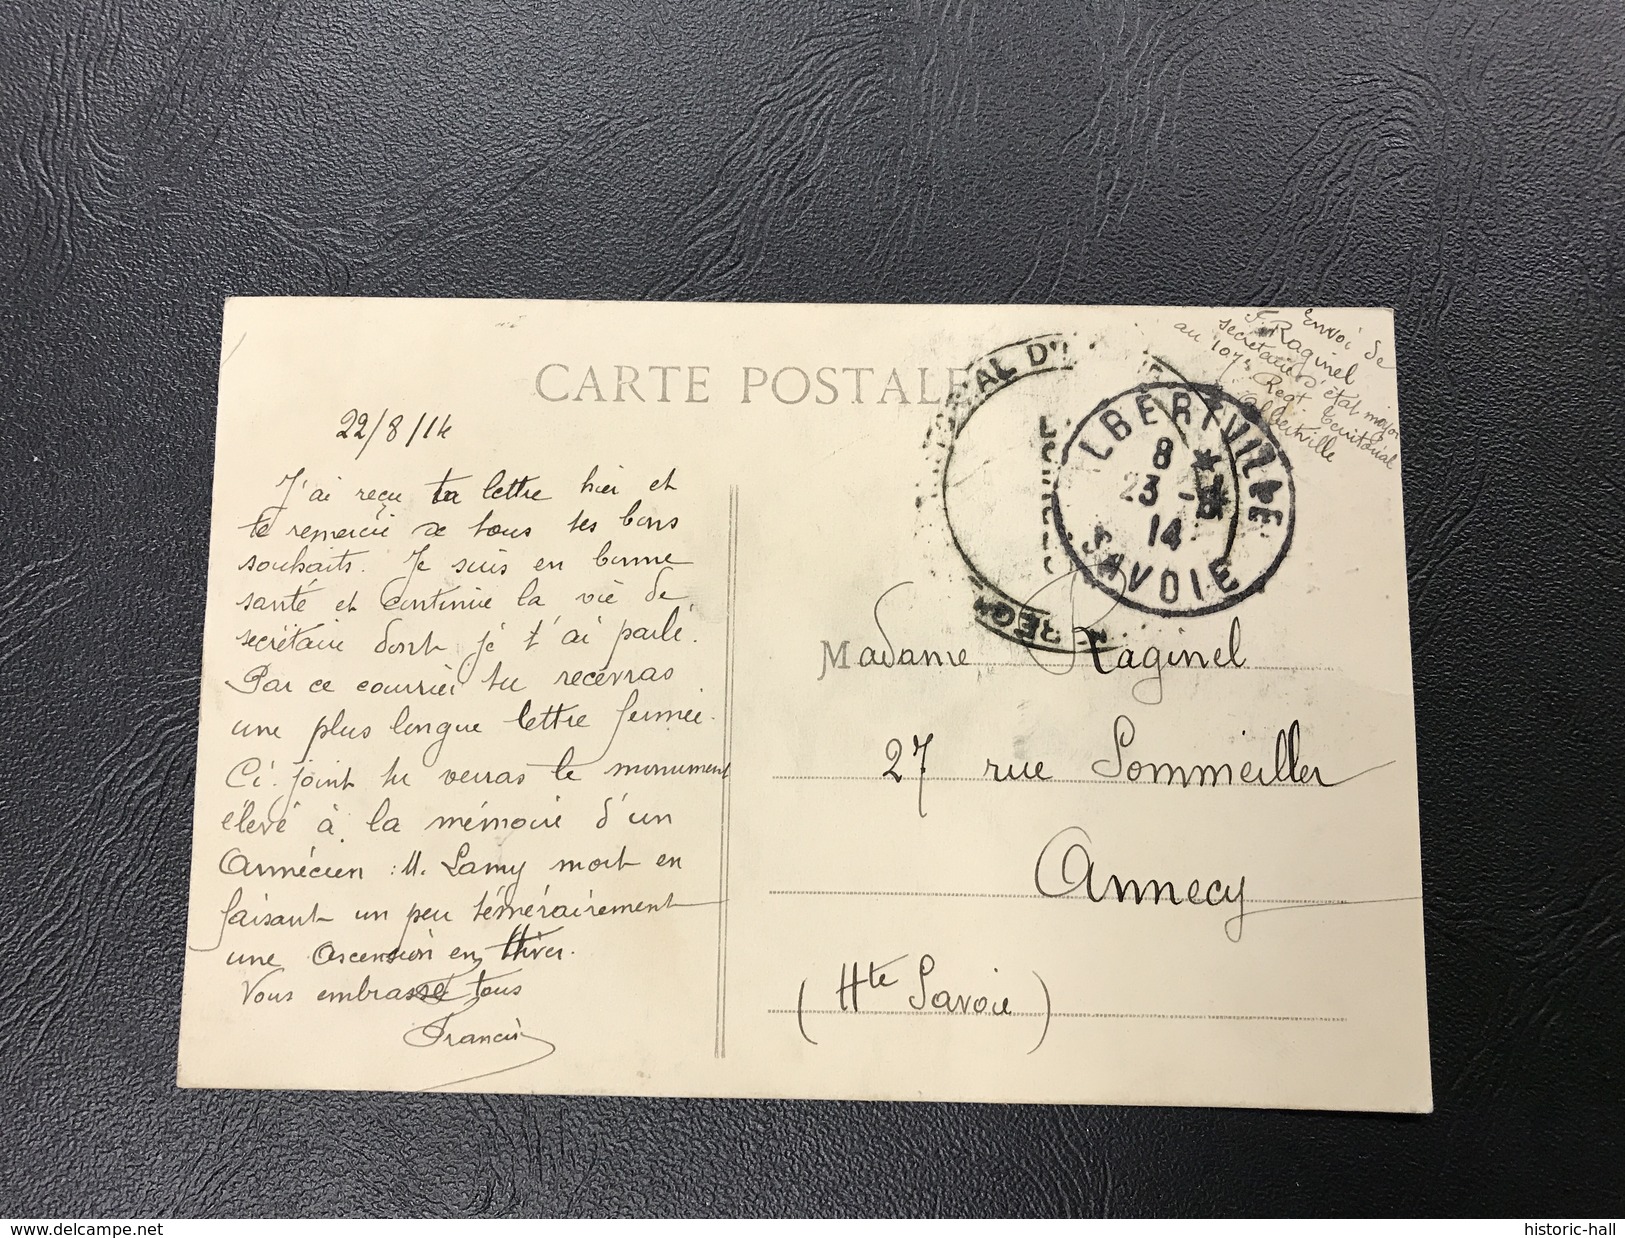 CARTE POSTALE
22/8/14
J'ai reçu ta lettre hier et
te remercie de tous tes bons
souhaits. Je suis en bonne
santé et continue la vie de
secrétaire dont je t'ai parlé.
Par ce courrier tu recevras
une plus longue lettre fermée.
Ci-joint tu verras le monument
élevé à la mémoire d'un
Annécien : M. Lamy mort en
faisant un peu témérairement
une Ascension en Hiver.
Vous embrasse tous
Francis
Envoi de
F. Raginel
secrétaire d'état major
au 107e Regt territorial
Albertville
AL D'
REG
LBERTVILLE
8
23 -8
14
SAVOIE
Madame Raginel
27 rue Sommeiller
Annecy
(Hte Savoie)
historic-hall
delcampe.net